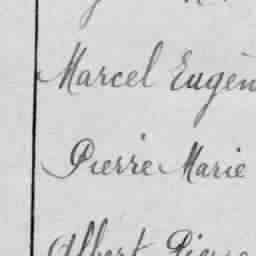 Marcel Eugèn
Pierre Marie
Albert Pierre